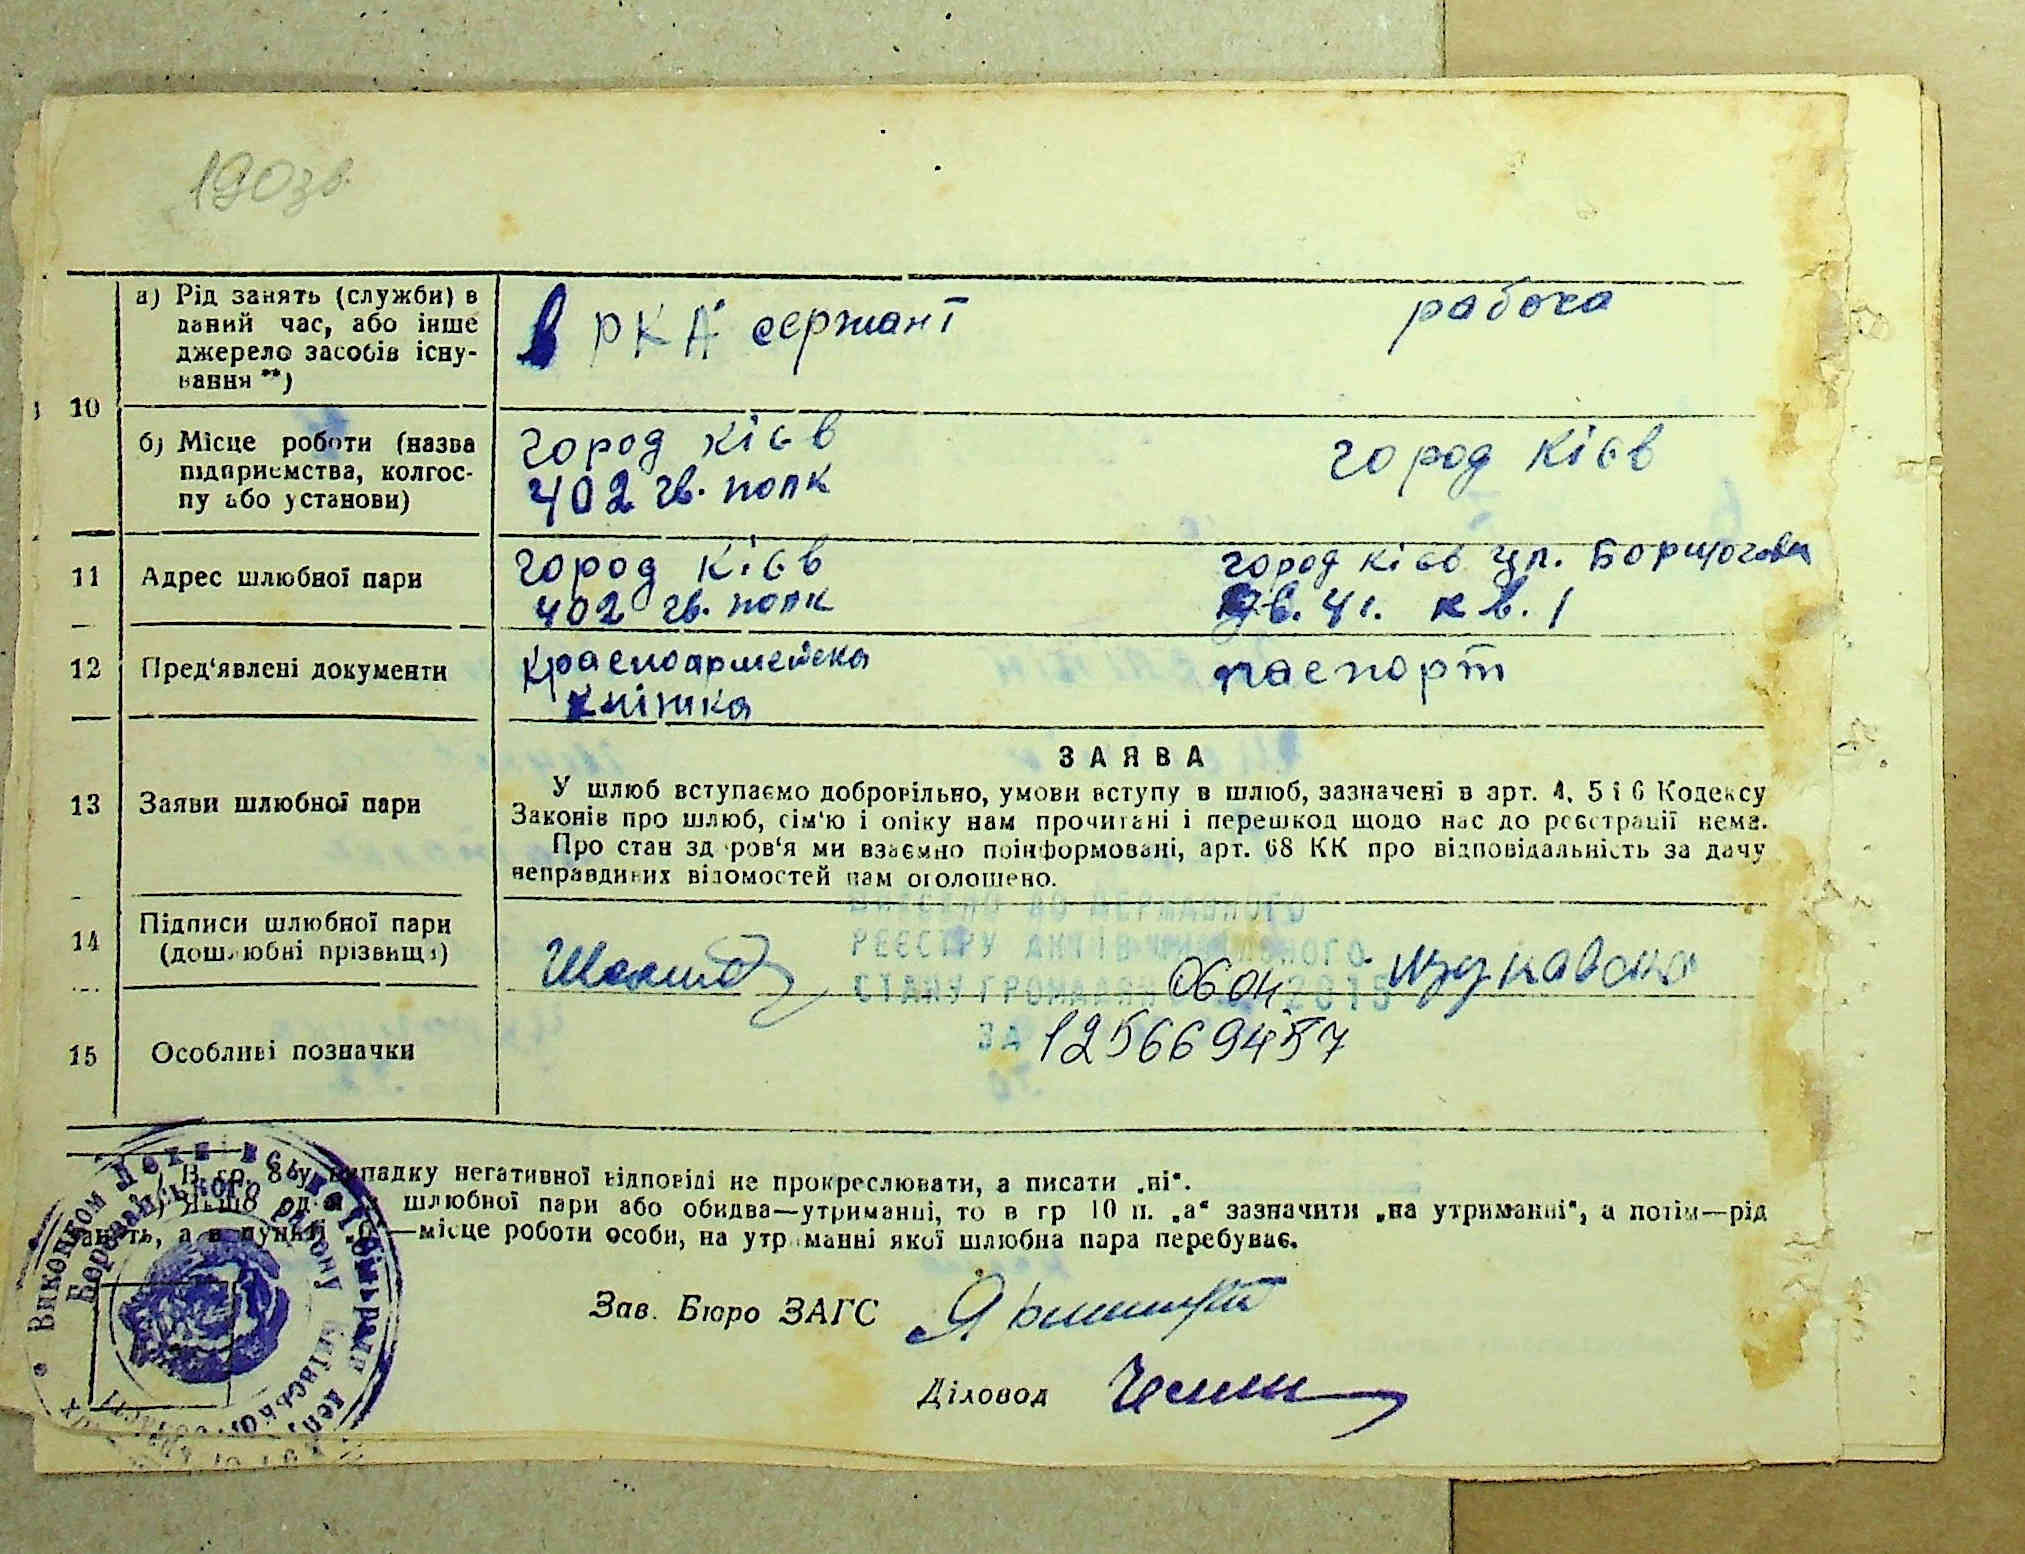 190зв.
10
а) Рід занять (служби) в
даний час, або інше
джерело засобів існу-
вання **)
в РКА сержант
рабоча
б) Місце роботи (назва
підприємства, колгос-
пу або установи)
город Кієв
402 гв. полк
город Кієв
11
Адрес шлюбної пари
город Кієв
402 гв. полк
город Кієв ул. Борщогова
дв. 41. кв. 1
12
Пред'явлені документи
Красноармейска
кніжка
паспорт
13
Заяви шлюбної пари
ЗАЯВА
У шлюб вступаємо добровільно, умови вступу в шлюб, зазначені в арт. 4, 5 і 6 Кодексу
Законів про шлюб, сім'ю і опіку нам прочитані і перешкод щодо нас до реєстрації нема.
Про стан здоров'я ми взаємно поінформовані, арт. 68 КК про відповідальність за дачу
неправдивих відомостей нам оголошено.
14
Підписи шлюбної пари
(дошлюбні прізвища)
ВНЕСЕНО ДО ДЕРЖАВНОГО
РЕЄСТРУ АКТІВ ЦИВІЛЬНОГО
СТАНУ ГРОМАДЯН 0604 2015
ЗА 1256669457
15
Особливі позначки
) В гр. 8 у випадку негативної відповіді не прокреслювати, а писати „ні".
) Якщо од шлюбної пари або обидва—утриманці, то в гр 10 п. „а" зазначити „на утриманні", а потім—рід
занять, а в пункті „б"—місце роботи особи, на утриманні якої шлюбна пара перебуває.
Зав. Бюро ЗАГС
Діловод
Виконком
Бородянського району Київської області